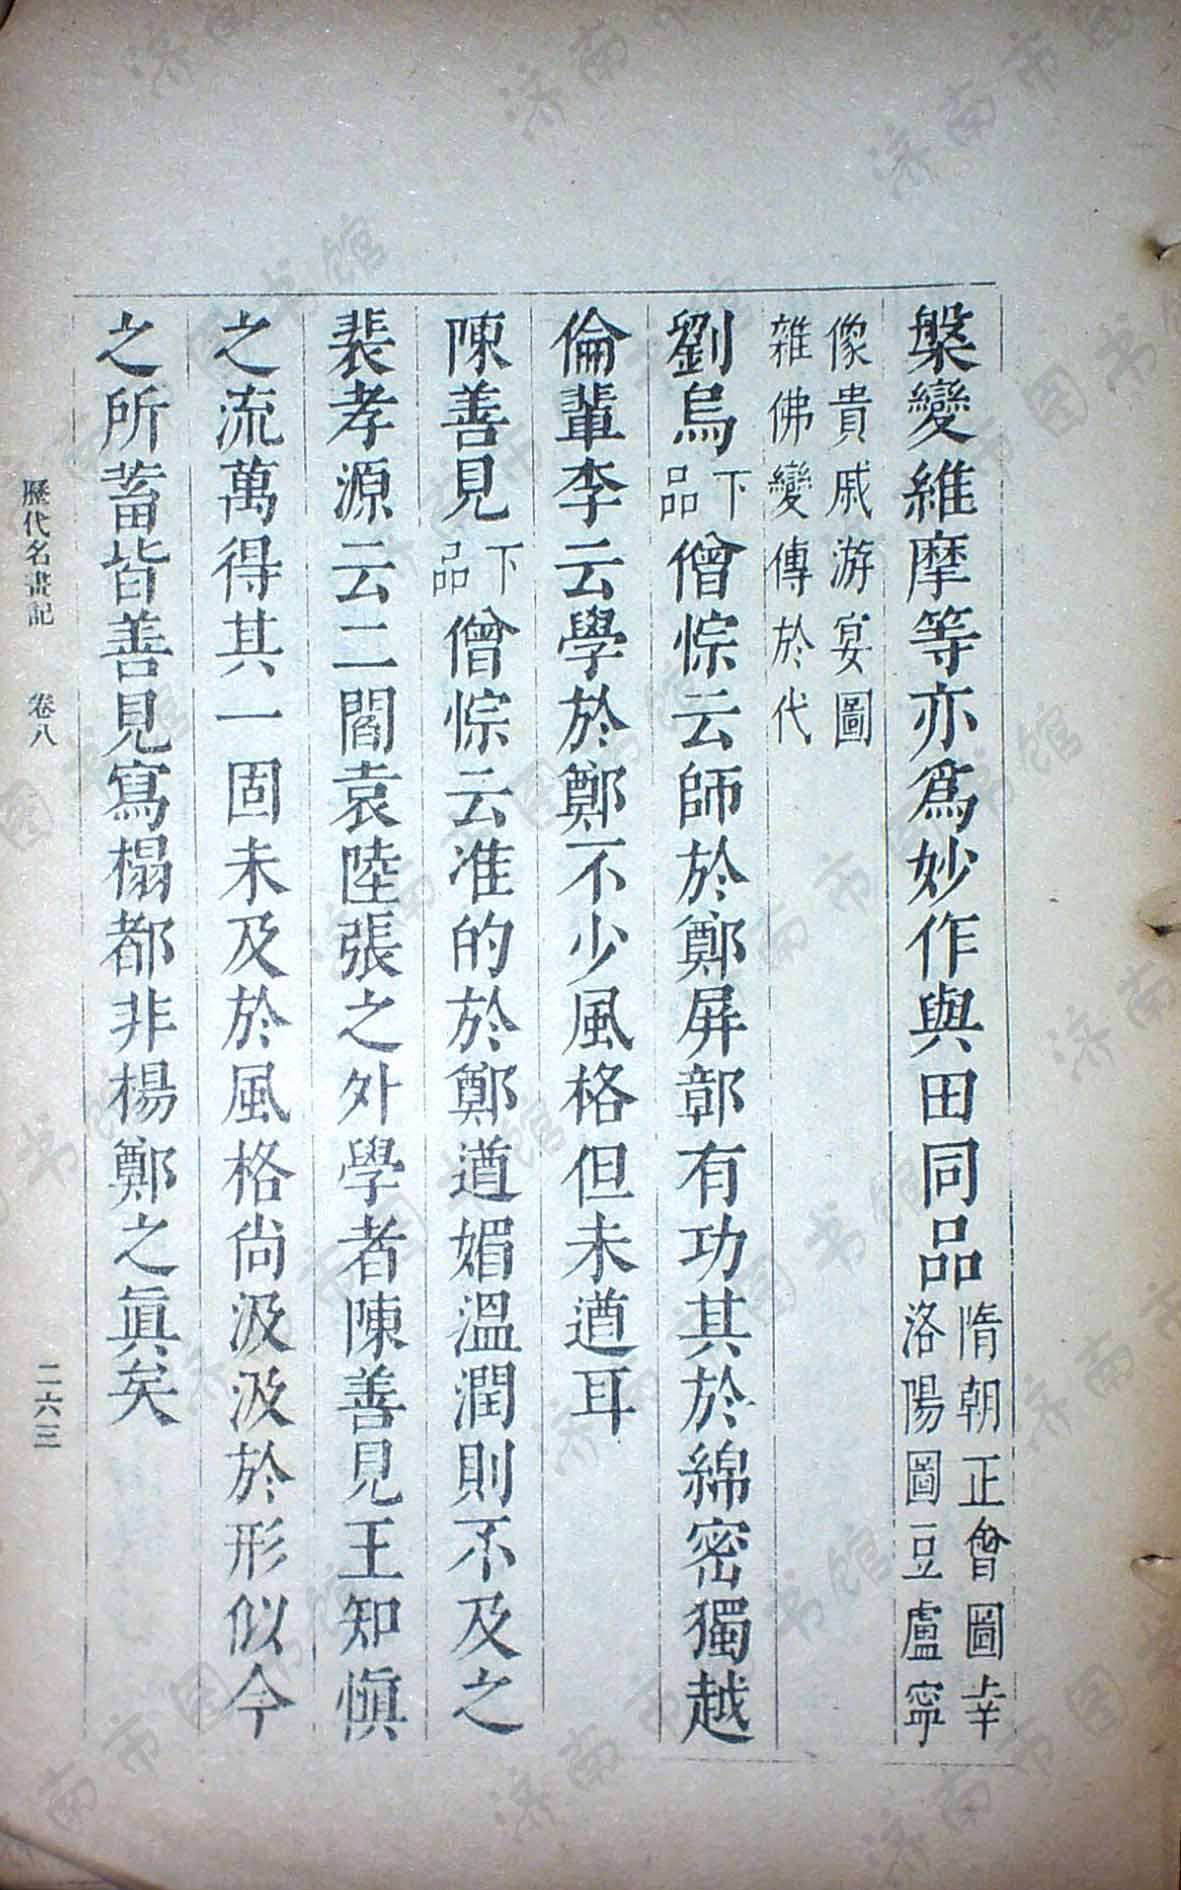 槃變維摩等亦爲妙作與田同品隋朝正會圖幸洛陽圖豆盧寧
像貴戚游宴圖雜佛變傳於代
劉烏下品僧悰云師於鄭屏鄣有功其於綿密獨越
倫輩李云學於鄭不少風格但未遒耳
陳善見下品僧悰云准的於鄭遒媚溫潤則不及之
裴孝源云二閻袁陸張之外學者陳善見王知愼
之流萬得其一固未及於風格尙汲汲於形似今
之所蓄皆善見寫榻都非楊鄭之眞矣
歷代名畫記 卷八 二六三
济南市图书馆